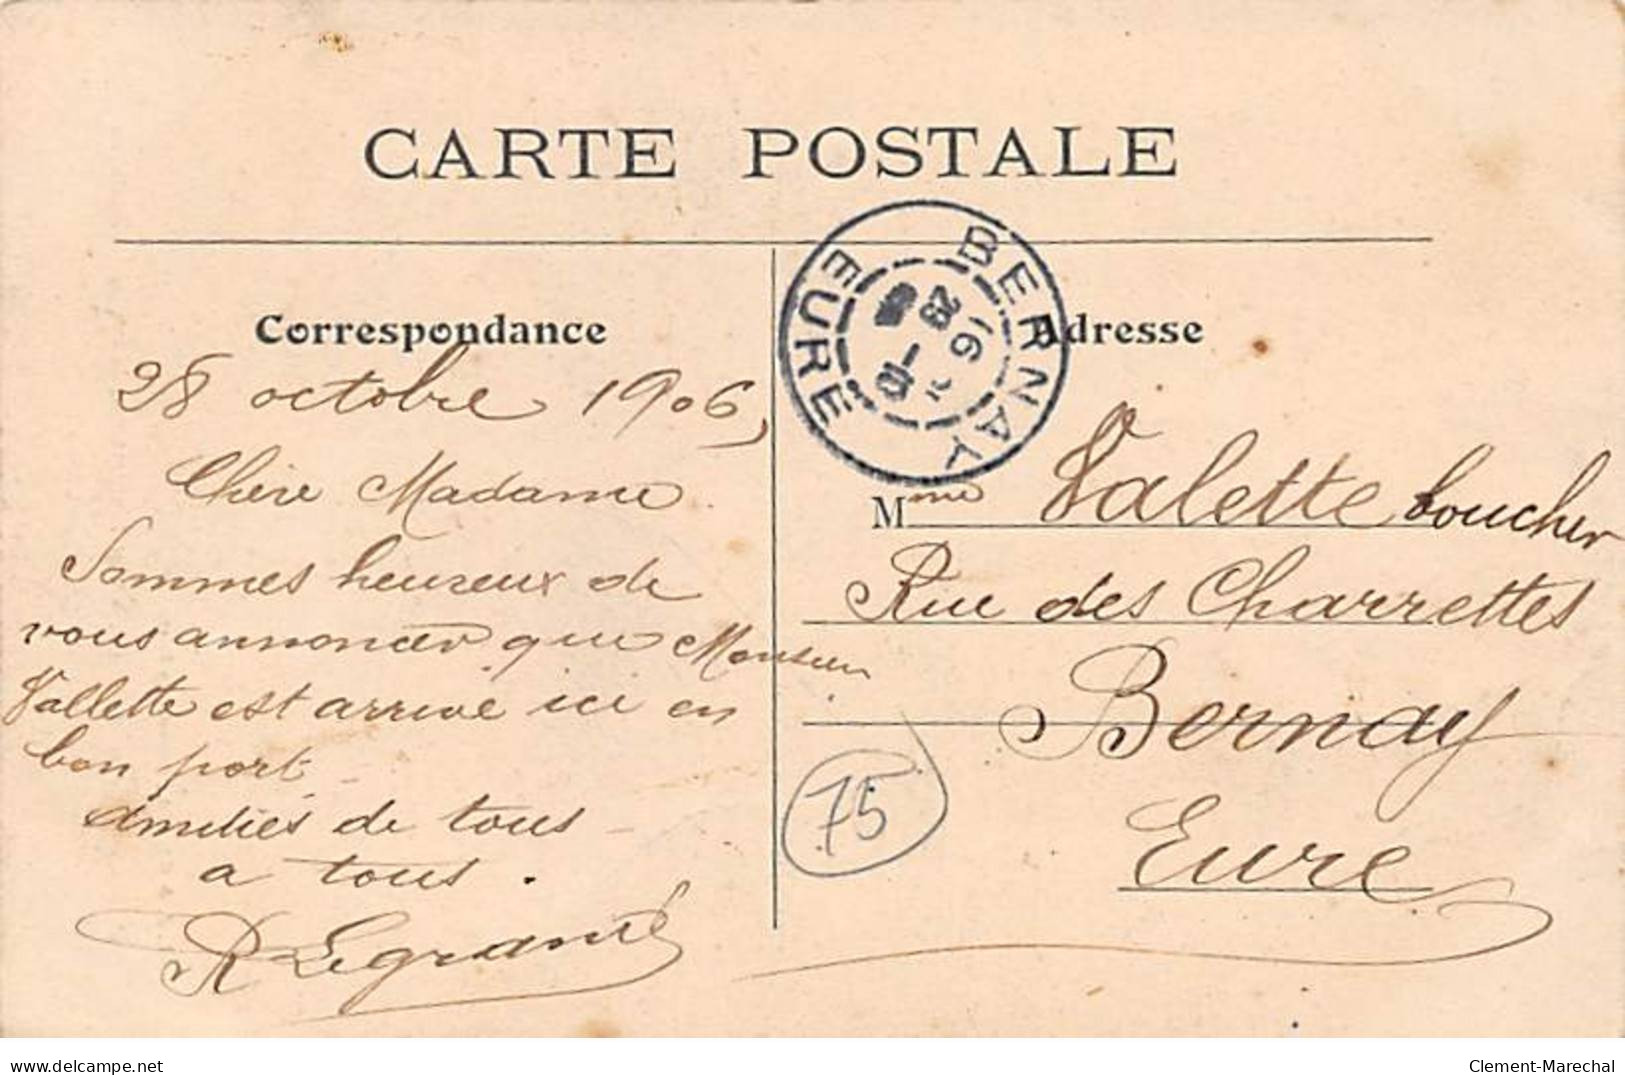 CARTE POSTALE
Correspondance
28 octobre 1906,
Chère Madame
Sommes heureux de
vous annoncer que Monsieur
Vallette est arrivé ici en
bon port -
amitiés de tous -
a tous.
R Legrand
BERNAY
EURE
Adresse
Mme Valette boucher
Rue des Charrettes
Bernay
Eure
75
www.delcampe.net
Clement-Marechal